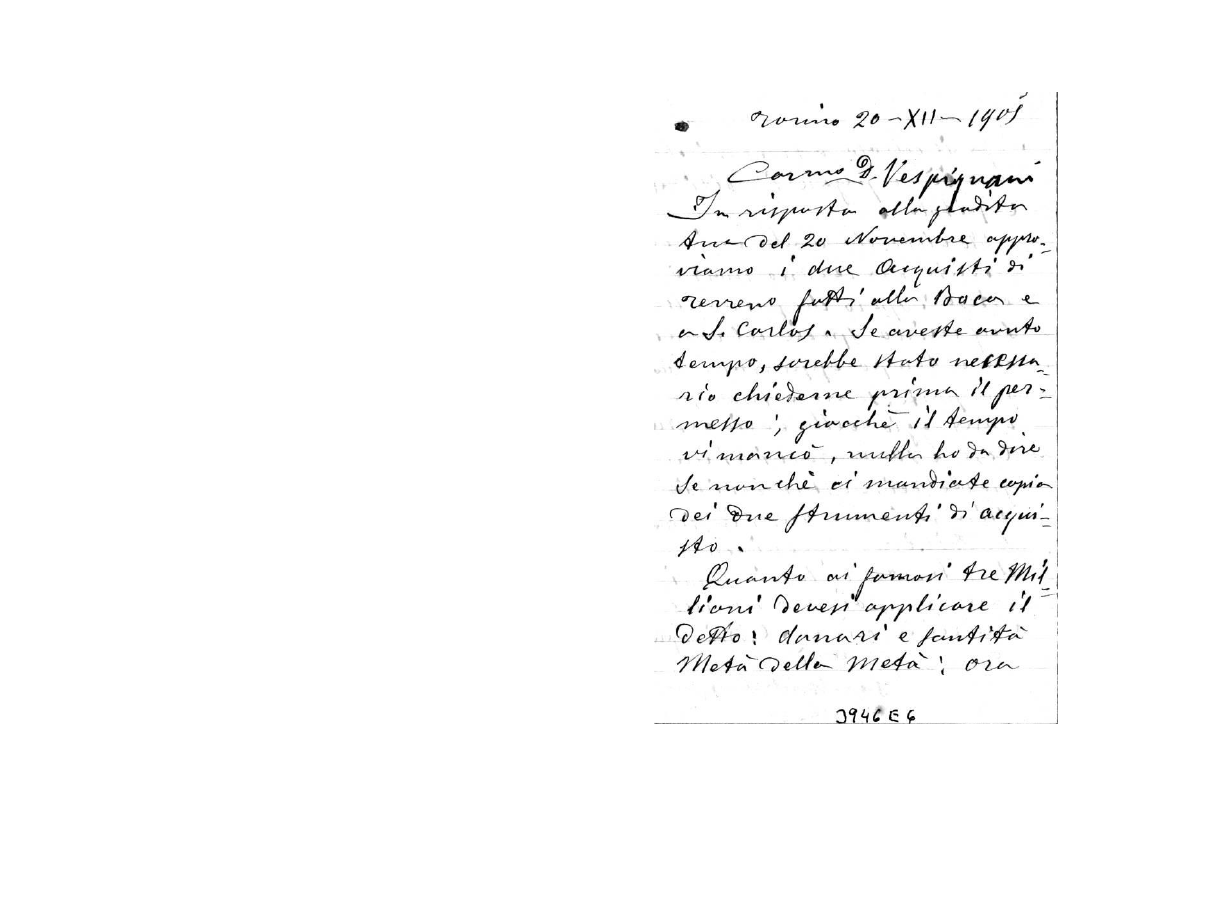 Torino 20-XII-1905
Carmo D. Vespignani
In risposta alla gradita
tua del 20 Novembre appro=
viamo i due Acquisti di
terreno fatti alla Boca e
a S. Carlos. Se aveste avuto
tempo, sarebbe stato necessa=
rio chiederne prima il per=
messo; giacchè il tempo
vi mancò, nulla ho da dire
se non chè ci mandiate copia
dei due strumenti di acqui=
sto.
Quanto ai famosi tre Mil=
lioni devesi applicare il
detto: danari e santità
Metà della metà; ora
3946 E 6